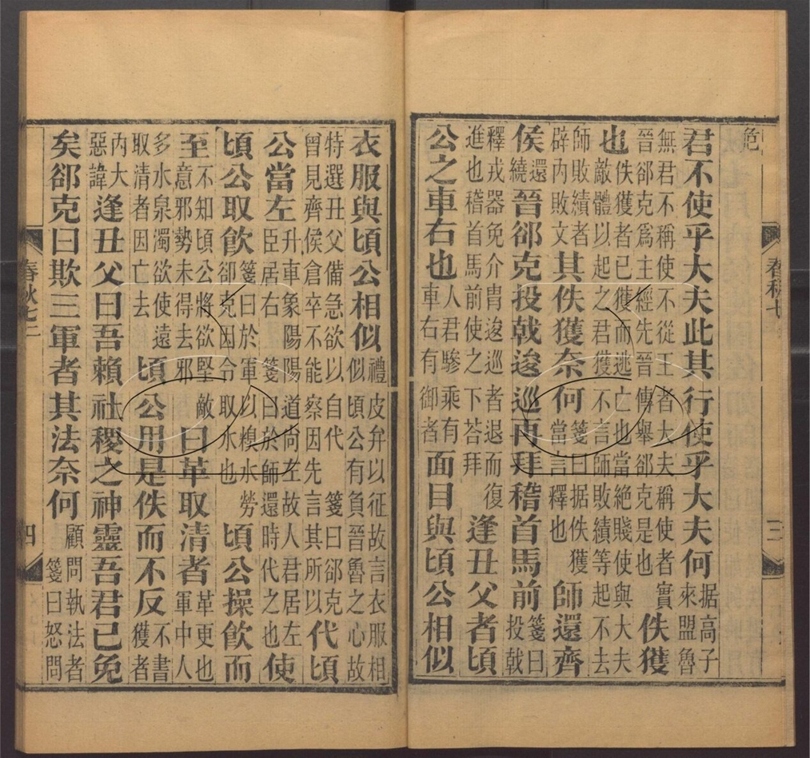 危
春秋七
三
君不使乎大夫此其行使乎大夫何
据高子
來盟魯
無君不稱使不從王者大夫稱使者實
晉郤克爲主經先晉傳舉郤克是也
佚獲
也
佚獲者已獲而逃亡也當絕賤使與大夫
敵體以起之君獲不言師敗績等起不去
師敗績者
辟內敗文
其佚獲奈何
箋曰据佚獲
當言釋也
師還齊
侯
還
繞
晉郤克投戟逡巡再拜稽首馬前
箋曰
投戟
釋戎器免介胄逡巡者退而復
進也稽首馬前使之下荅拜
逢丑父者頃
公之車右也
人君驂乘有
車右有御者
面目與頃公相似
衣服與頃公相似
禮皮弁以征故言衣服相
似頃公有負晉魯之心故
特選丑父備急欲以自代 箋曰郤克
曾見齊侯倉卒不能察因先言其所以
代頃
公當左
升車象陽陽道尚左故人君居左
臣居右 箋曰於師還時代之也
使
頃公取飲
箋曰於軍以糗水勞
郤克因令取水也
頃公操飲而
至
不知頃公將欲堅敵
意邪勢未得去邪
曰革取清者
革更也
軍中人
多水泉濁欲使遠
取清者因亡去
頃公用是佚而不反
不書
獲者
內大
惡諱
逢丑父曰吾賴社稷之神靈吾君已免
矣郤克曰欺三軍者其法奈何
顧問執法者
箋曰怒問
春秋七二
四